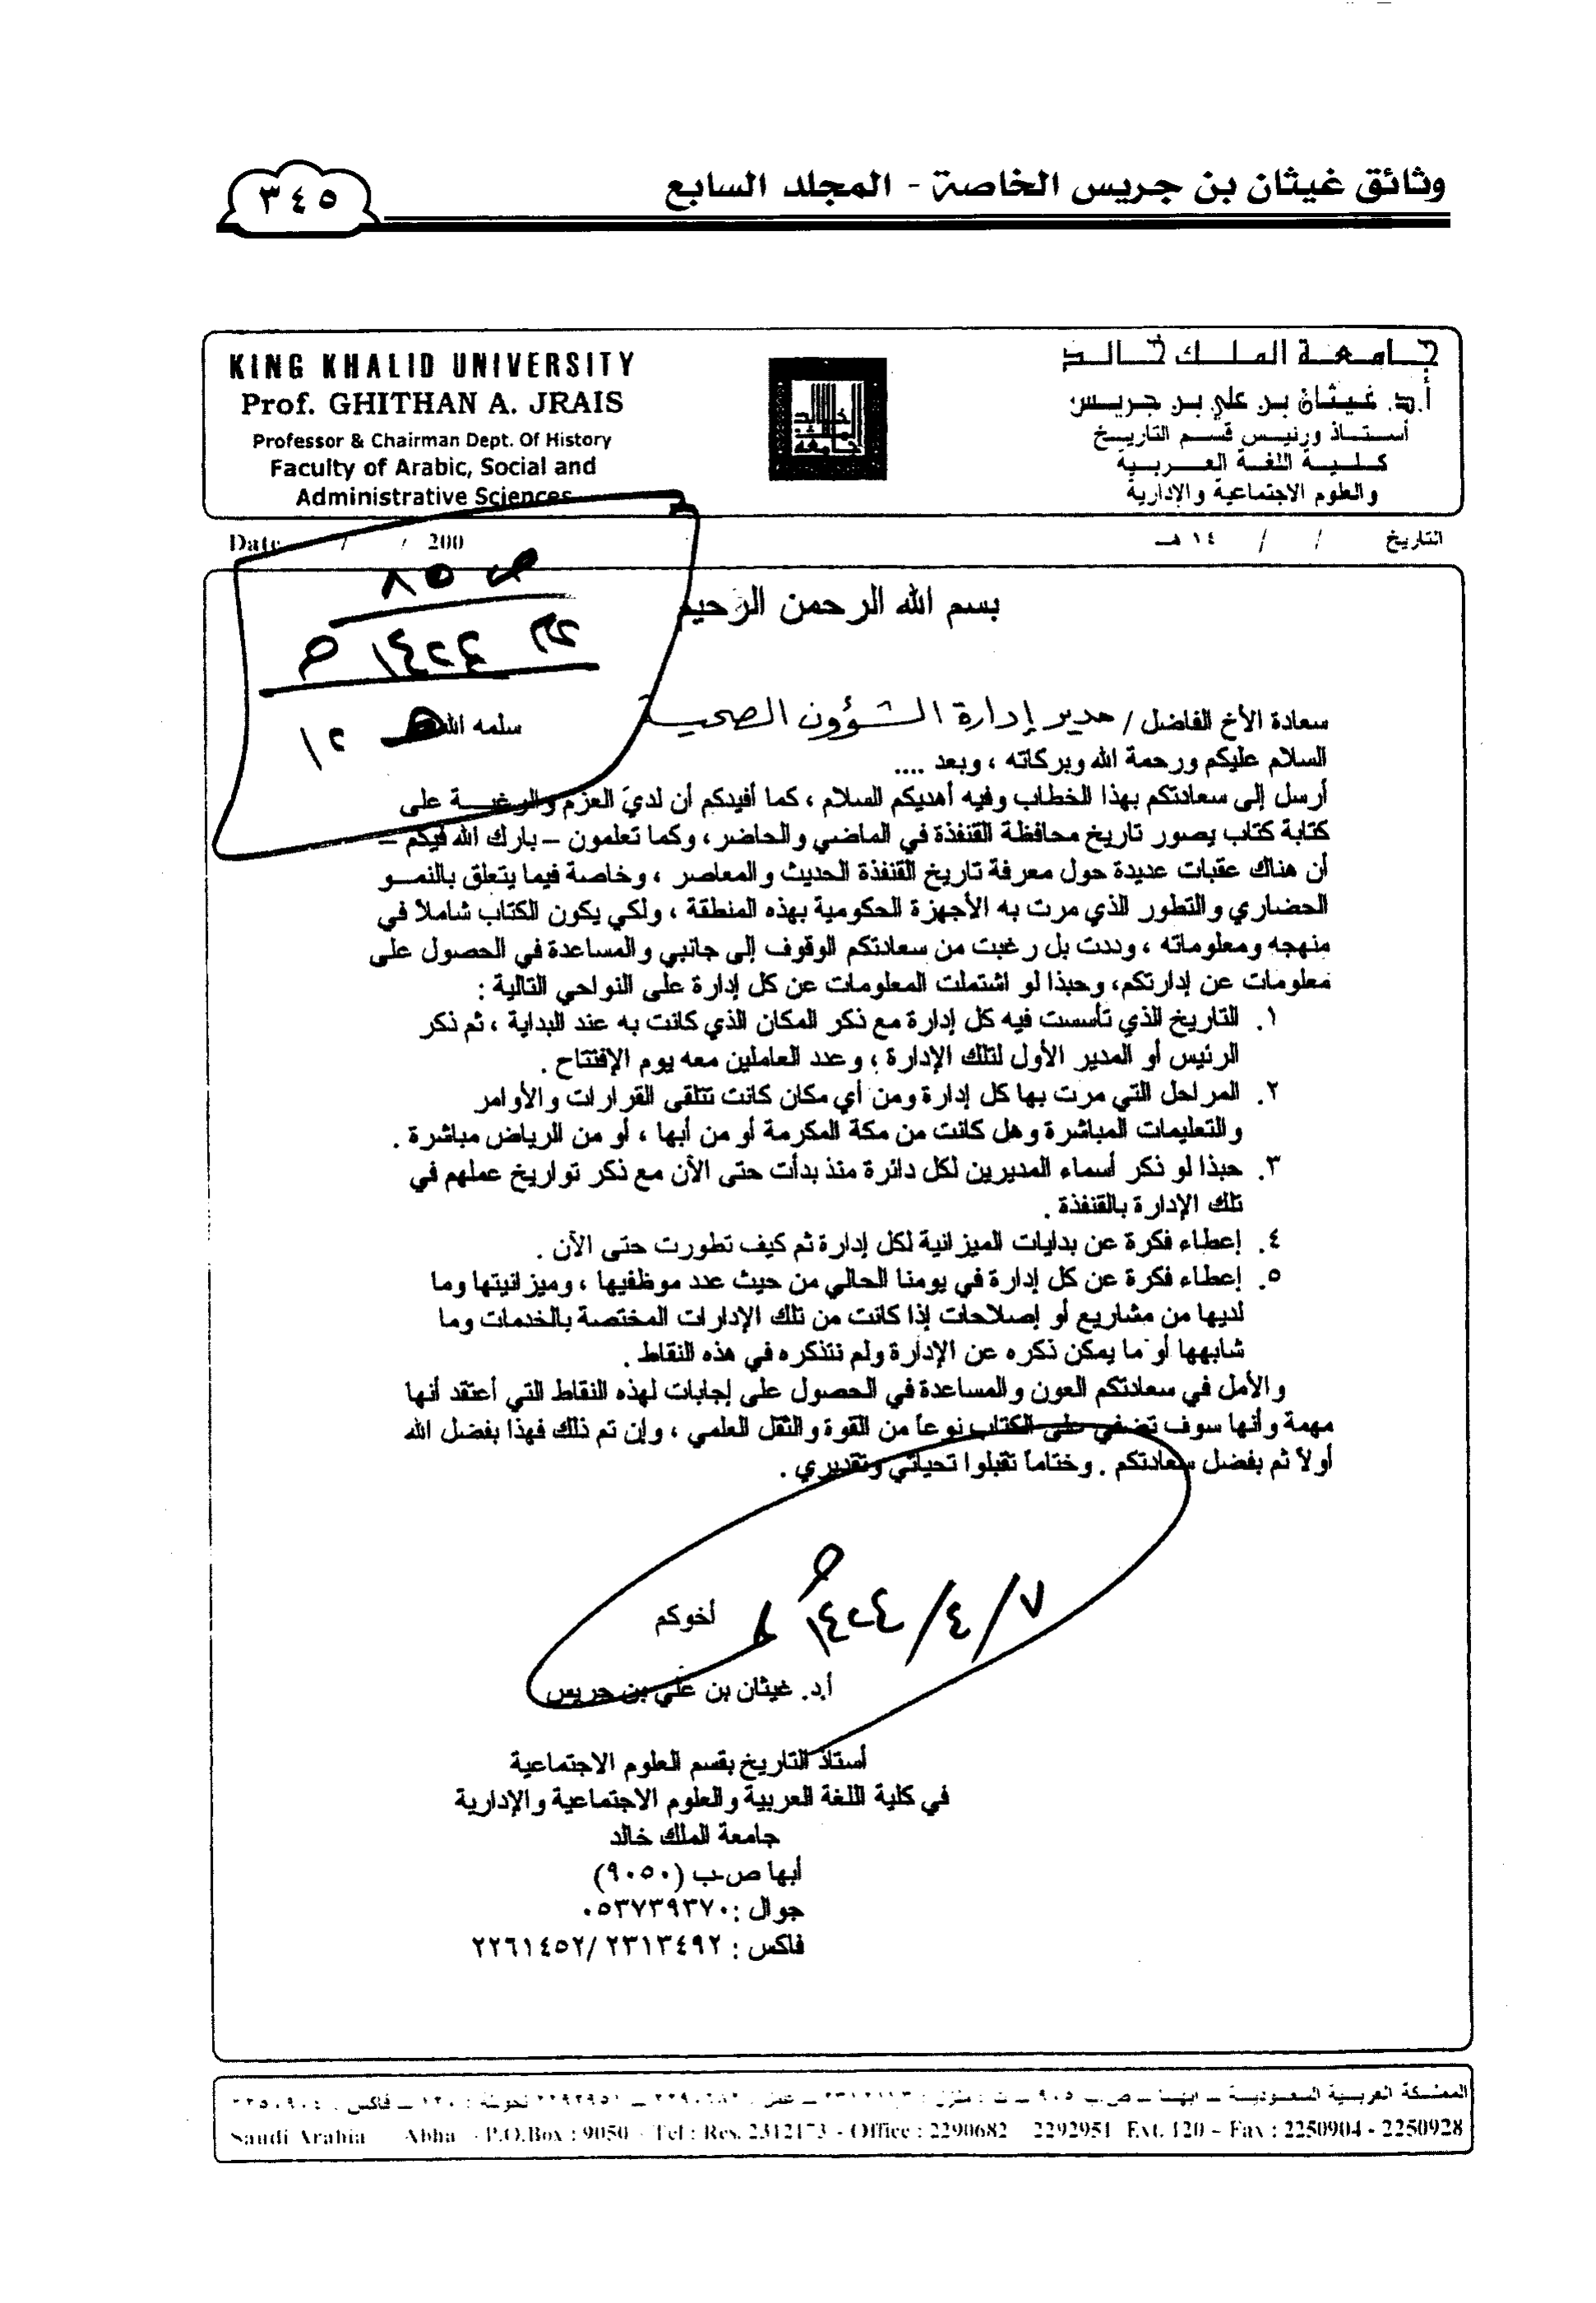 وثائق غيثان بن جريس الخاصة - المجلد السابع
٣٤٥
جامعة الملك خالد
أ.د. غيثان بن علي بن جريس
أستاذ ورئيس قسم التاريخ
كلية اللغة العربية
والعلوم الاجتماعية والإدارية
KING KHALID UNIVERSITY
Prof. GHITHAN A. JRAIS
Professor & Chairman Dept. Of History
Faculty of Arabic, Social and
Administrative Sciences
التاريخ / / ١٤ هـ
Date / / 200
ص ٨٥
١٤٢٤ هـ
بسم الله الرحمن الرحيم
سعادة الأخ الفاضل / مدير إدارة الشؤون الصحية سلمه الله
السلام عليكم ورحمة الله وبركاته ، وبعد ....
أرسل إلى سعادتكم بهذا الخطاب وفيه أهديكم السلام ، كما أفيدكم أن لديّ العزم والرغبة على
كتابة كتاب يصور تاريخ محافظة القنفذة في الماضي والحاضر ، وكما تعلمون – بارك الله فيكم –
أن هناك عقبات عديدة حول معرفة تاريخ القنفذة الحديث والمعاصر ، وخاصة فيما يتعلق بالنمو
الحضاري والتطور الذي مرت به الأجهزة الحكومية بهذه المنطقة ، ولكي يكون الكتاب شاملاً في
منهجه ومعلوماته ، وددت بل رغبت من سعادتكم الوقوف إلى جانبي والمساعدة في الحصول على
معلومات عن إدارتكم، وحبذا لو اشتملت المعلومات عن كل إدارة على النواحي التالية :
١. التاريخ الذي تأسست فيه كل إدارة مع ذكر المكان الذي كانت به عند البداية ، ثم ذكر
الرئيس أو المدير الأول لتلك الإدارة ، وعدد العاملين معه يوم الإفتتاح .
٢. المراحل التي مرت بها كل إدارة ومن أي مكان كانت تتلقى القرارات والأوامر
والتعليمات المباشرة وهل كانت من مكة المكرمة أو من أبها ، أو من الرياض مباشرة .
٣. حبذا لو ذكر أسماء المديرين لكل دائرة منذ بدأت حتى الآن مع ذكر تواريخ عملهم في
تلك الإدارة بالقنفذة .
٤. إعطاء فكرة عن بدايات الميزانية لكل إدارة ثم كيف تطورت حتى الآن .
٥. إعطاء فكرة عن كل إدارة في يومنا الحالي من حيث عدد موظفيها ، وميزانيتها وما
لديها من مشاريع أو إصلاحات إذا كانت من تلك الإدارات المختصة بالخدمات وما
شابهها أو ما يمكن ذكره عن الإدارة ولم نتذكره في هذه النقاط .
والأمل في سعادتكم العون والمساعدة في الحصول على إجابات لهذه النقاط التي أعتقد أنها
مهمة وأنها سوف تضفي على الكتاب نوعاً من القوة والثقل العلمي ، وإن تم ذلك فهذا بفضل الله
أولاً ثم بفضل سعادتكم . وختاماً تقبلوا تحياتي وتقديري .
٧/٤/١٤٢٤ هـ
أخوكم
أ.د. غيثان بن علي بن جريس
أستاذ التاريخ بقسم العلوم الاجتماعية
في كلية اللغة العربية والعلوم الاجتماعية والإدارية
جامعة الملك خالد
أبها ص.ب (٩٠٥٠)
جوال : ٠٥٣٧٣٩٣٧٠
فاكس : ٢٣١٣٤٩٢/ ٢٢٦١٤٥٢
المملكة العربية السعودية – ابها – ص.ب ٩٠٥ – ت : منزل : – عمل : – ٢٢٩٢٩٥١ تحويلة : ١٢٠ – فاكس :
Saudi Arabia Abha - P.O.Box : 9050 - Tel : Res. 2312173 - Office : 2290682 2292951 Ext. 120 - Fax : 2250904 - 2250928